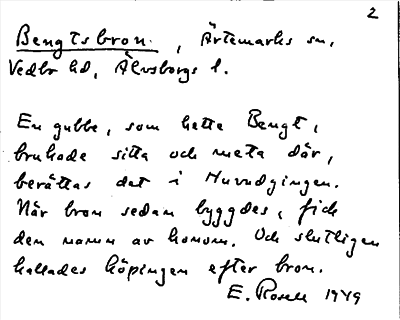 2
Bengtsbron. , Ärtemarks sn,
Vedbo hd, Älvsborgs l.
En gubbe, som hette Bengt,
brukade sitta och meta där,
berättas det i Huvudgingen.
När bron sedan byggdes, fick
den namn av honom. Och slutligen
kallades köpingen efter bron.
E. Rosell 1949